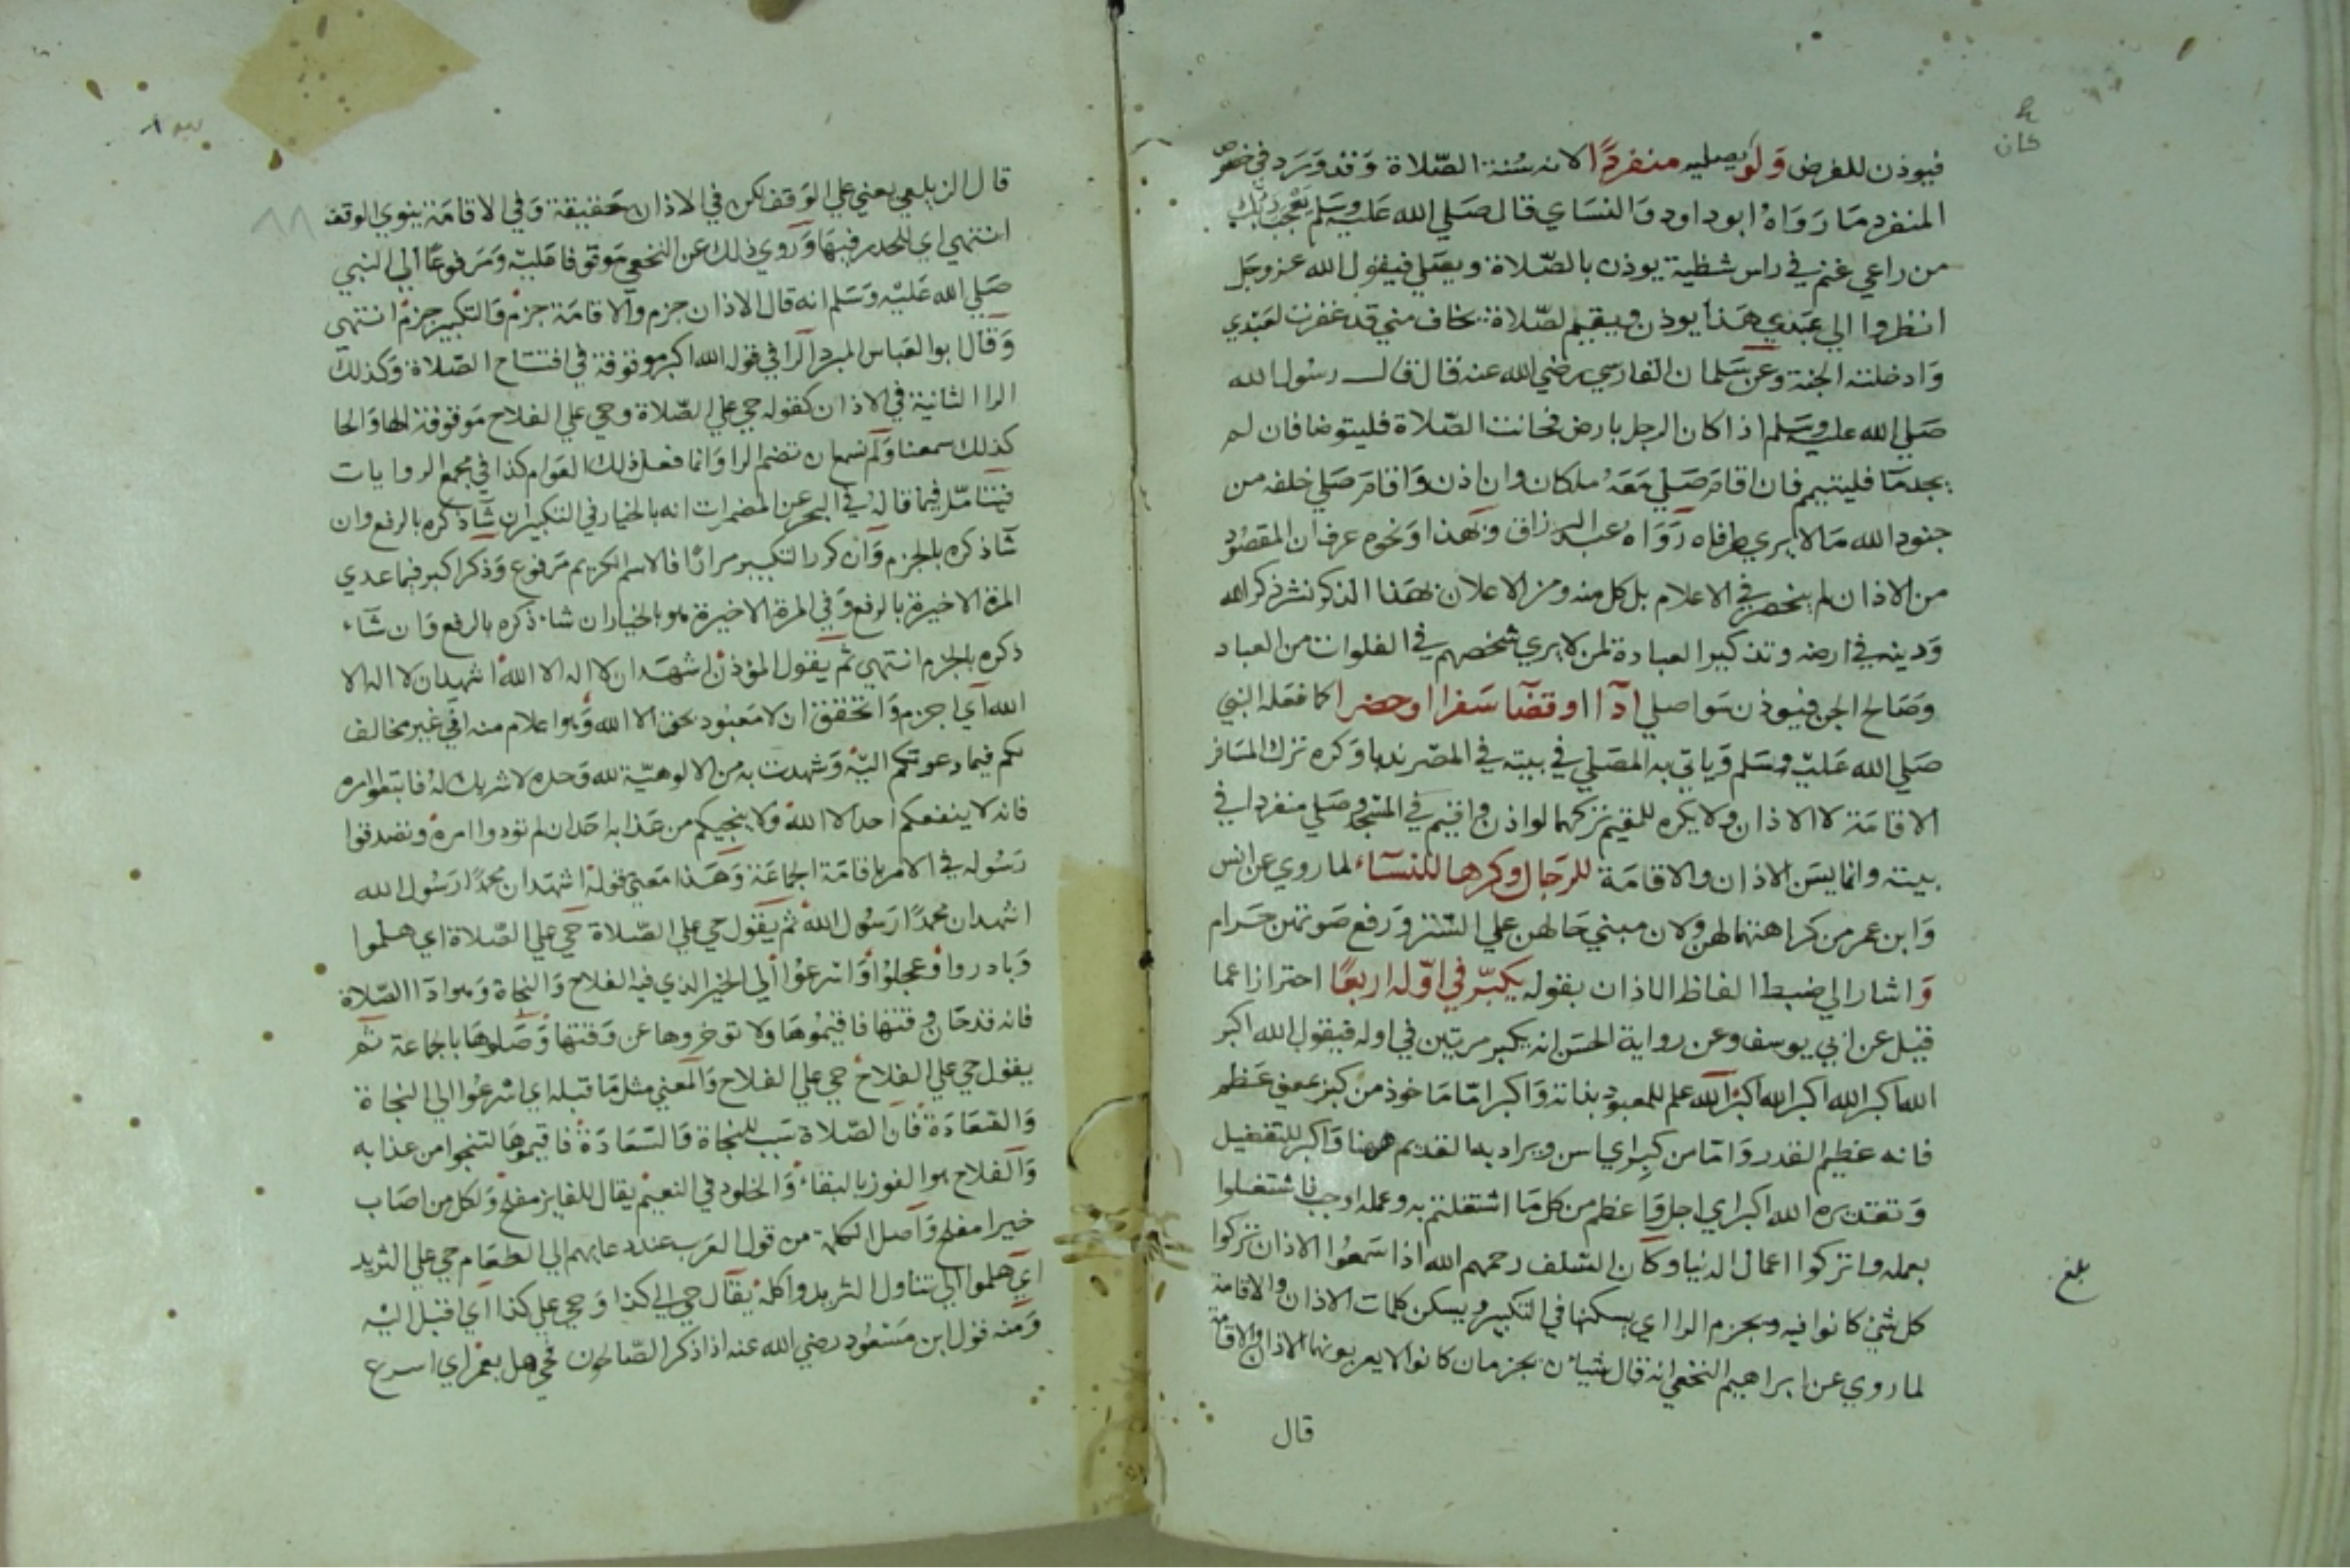 كان
فيوذن للفرض ولو يصليه منفردا لانه سنة الصلاة وقد ورد في خصوص
المنفرد ما رواه ابو داود والنساي قال صلي الله عليه وسلم يعجب ربك
من راعي غنم في راس شظية يوذن بالصلاة ويصلي فيقول الله عز وجل
انظروا الي عبدي هذا يوذن ويقيم لصلاة يخاف مني قد غفرت لعبدي
وادخلته الجنة وعن سلمان الفارسي رضي الله عنه قال قال رسول الله
صلي الله عليه وسلم اذا كان الرجل بارض فحانت الصلاة فليتوضا فان لم
يجد ما فليتيمم فان اقام صلي معه ملكان وان اذن واقام صلي خلفه من
جنود الله ما لا يري طرفاه رواه عبد الرزاق وبهذا ونحوه عرف ان المقصود
من الاذان لم ينحصر في الاعلام بل كل منه ومن الاعلان بهذا الذكر نشر ذكر الله
ودينه في ارضه وتذكير العباده لمن لا يري شخصهم في الفلوات من العباد
وصالح الجن فيوذن سوا صلي ادآ او قضآ سفرا او حضرا كما فعله النبي
صلي الله عليه وسلم وياتي به المصلي في بيته في المصر ندبا وكره ترك المسافر
الاقامة لا الاذان ولا يكره للمقيم تركهما لو اذن واقيم في المسجد وصلي منفردا في
بيته وانما يسن الاذان والاقامة للرجال وكرها للنسآء لما روي عن انس
وابن عمر من كراهتهما لهن ولان مبني حالهن علي الستر ورفع صوتهن حرام
واشار الي ضبط الفاظ الاذان بقوله يكبر في اوله اربعا احترازا عما
قيل عن ابي يوسف وعن رواية الحسن انه يكبر مرتين في اوله فيقول الله اكبر
الله اكبر الله اكبر الله اكبر الله علم للمعبود بذاته واكبر اما ماخوذ من كبر بمعني عظم
فانه عظيم القدر واما من كبر اي اسن ويراد به القديم ههنا واكبر للتفضيل
وتقديره الله اكبر اي اجل واعظم من كل ما اشتغلتم به وعمله اوجب فاشتغلوا
بعمله واتركوا اعمال الدنيا وكان السلف رحمهم الله اذا سمعوا الاذان تركوا
كل شي كانوا فيه ويجزم الرا اي يسكنها في التكبير ويسكن كلمات الاذان والاقامة
لما روي عن ابراهيم النخعي انه قال شيان يجزمان كانوا لا يعربونهما الاذان والاقامة
قال
بلغ
قال الزيلعي يعني علي الوقف لكن في الاذان حقيقة وفي الاقامة ينوي الوقف
انتهي اي للحدر فيها وروي ذلك عن النخعي موقوفا عليه ومرفوعا الي النبي
صلي الله عليه وسلم انه قال الاذان جزم والاقامة جزم والتكبير جزم انتهي
وقال ابو العباس المبرد الرا في قوله الله اكبر موقوفة في افتتاح الصلاة وكذلك
الرا الثانية في الاذان كقوله حي علي الصلاة وحي علي الفلاح موقوفة الها والحا
كذلك سمعنا ولم نسمعان تضم الرا وانما فعل ذلك العوام كذا في مجمع الروايات
فيتامل فيما قاله في البحر عن المضمرات انه بالخيار في التكبير ان شآ ذكره بالرفع وان
شآ ذكره بالجزم وان كرر التكبير مرارا فالاسم الكريم مرفوع وذكر اكبر فيما عدي
المرة الاخيرة بالرفع وفي المرة الاخيرة هو بالخيار ان شاء ذكره بالرفع وان شآء
ذكره بالجزم انتهي ثم يقول المؤذن اشهد ان لا اله الا الله اشهد ان لا اله الا
الله اي اجزم واتحقق ان لا معبود بحق الا الله وهو اعلام منه اني غير مخالف
لكم فيما دعوتكم اليه وشهدت به من الالوهية لله وحده لا شريك له فاتبعوا امره
فانه لا ينفعكم احد الا الله ولا ينجيكم من عذابه احد ان لم تودوا امره وتصدقوا
رسوله في الامر باقامة الجماعة وهذا معني قوله اشهد ان محمدا رسول الله
اشهد ان محمدا رسول الله ثم يقول حي علي الصلاة حي علي الصلاة اي هلموا
وبادروا وعجلوا واسرعوا الي الخير الذي فيه الفلاح والنجاة وهو ادآ الصلاة
فانه قد حان وقتها فاقيموها ولا توخروها عن وقتها وصلوها بالجماعة ثم
يقول حي علي الفلاح حي علي الفلاح والمعني مثل ما قبله اي اسرعوا الي النجاة
والسعادة فان الصلاة سبب للنجاة والسعادة فاقيموها لتنجوا من عذابه
والفلاح هو الفوز بالبقاء والخلود في النعيم يقال للفايز مفلح ولكل من اصاب
خيرا مفلح واصل الكلمة من قول العرب عند دعايهم الي الطعام حي علي الثريد
اي هلموا الي تناول الثريد واكله يقال حي الي كذا وحي علي كذا اي اقبل اليه
ومنه قول ابن مسعود رضي الله عنه اذا ذكر الصالحون فحي هل بعمر اي اسرع